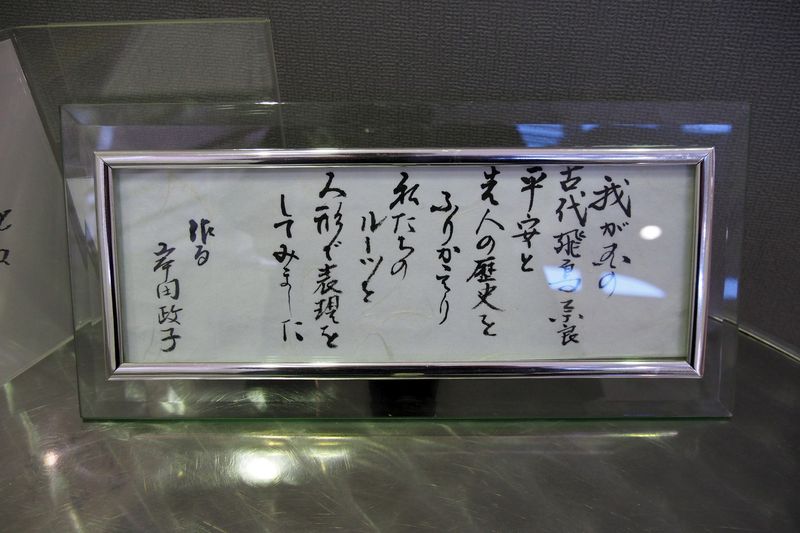 我が国の
古代飛鳥奈良
平安と
先人の歴史を
ふりかえり
私たちの
ルーツを
人形で表現を
してみました
作者
岸田政子